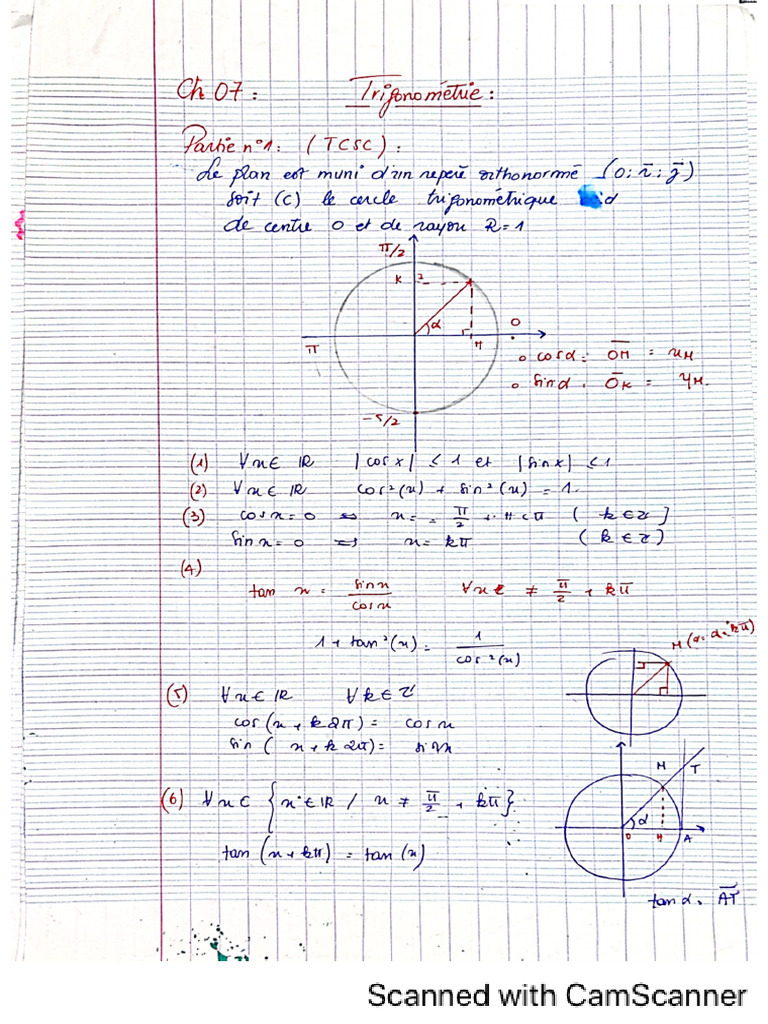 Ch 07 : Trigonométrie :
Partie n°1 : (TCSC) :
Le plan est muni d'un repère orthonormé (O ; i ; j)
soit (C) le cercle trigonométrique
de centre O et de rayon R = 1
π/2
K
α
π
H
O
cos α = OH = x_M
sin α = OK = y_M.
(1) ∀x ∈ IR |cos x| ≤ 1 et |sin x| ≤ 1
(2) ∀x ∈ IR cos²(x) + sin²(x) = 1.
(3) cos x = 0 ⇔ x = π/2 + kπ (k ∈ Z)
sin x = 0 ⇔ x = kπ (k ∈ Z)
(4)
tan x = sin x / cos x ∀x ≠ π/2 + kπ
1 + tan²(x) = 1 / cos²(x)
(5) ∀x ∈ IR ∀k ∈ Z
cos(x + k2π) = cos x
sin(x + k2π) = sin x
(6) ∀x ∈ {x ∈ IR / x ≠ π/2 + kπ}
tan(x + kπ) = tan(x)
M T
α
O H A
tan α = AT
Scanned with CamScanner